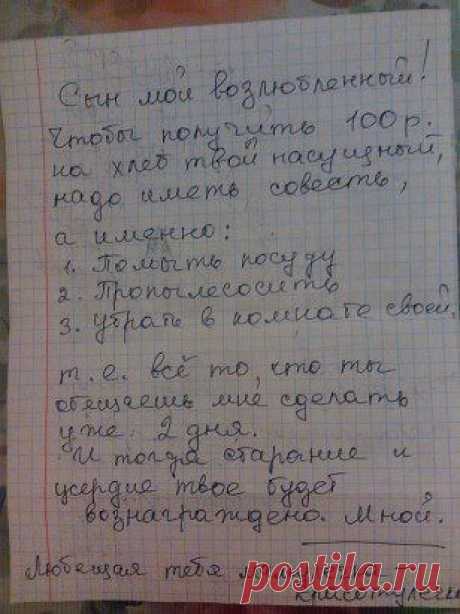 Сын мой возлюбленный!
Чтобы получить 100 р.
на хлеб твой насущный,
надо иметь совесть,
а именно:
1. Помыть посуду
2. Пропылесосить
3. Убрать в комнате своей.
т.е. всё то, что ты
обещаешь мне сделать
уже 2 дня.
И тогда старание и
усердие твое будет
вознаграждено. Мной.
Любещая тебя
postila.ru